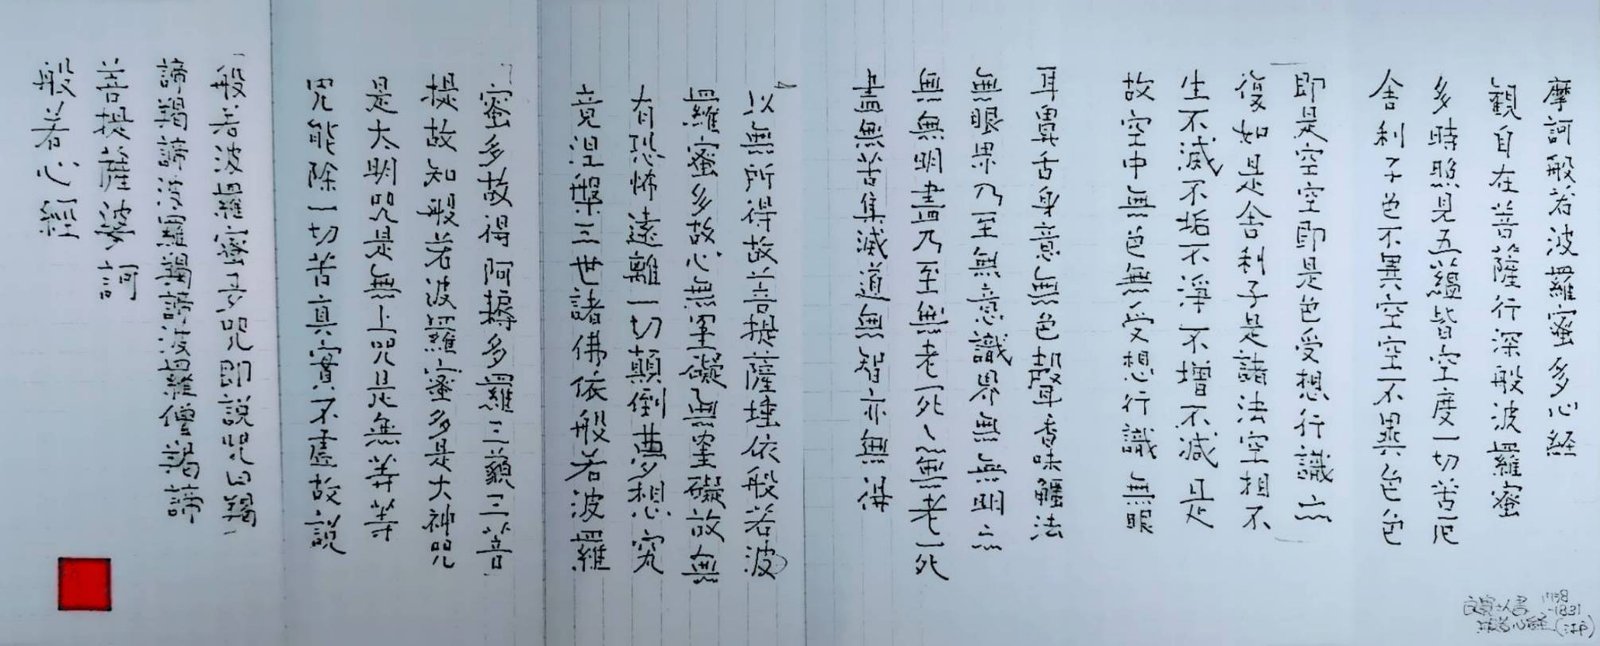 摩訶般若波羅蜜多心経
観自在菩薩行深般波羅蜜
多時照見五蘊皆空度一切苦厄
舎利子色不異空空不異色色
即是空空即是色受想行識亦
復如是舎利子是諸法空相不
生不滅不垢不淨不増不減是
故空中無色無受想行識無眼
耳鼻舌身意無色聲香味觸法
無眼界乃至無意識界無無明亦
無無明盡乃至無老死亦無老死
盡無苦集滅道無智亦無得
以無所得故菩提薩埵依般若波
羅蜜多故心無罣礙無罣礙故無
有恐怖遠離一切顛倒夢想究
竟涅槃三世諸佛依般若波羅
蜜多故得阿耨多羅三藐三菩
提故知般若波羅蜜多是大神咒
是大明咒是無上咒是無等等
咒能除一切苦真實不虛故説
般若波羅蜜多咒即説咒曰羯
諦羯諦波羅羯諦波羅僧羯諦
菩提薩婆訶
般若心經
1758
-1831
般若心経(江戸)